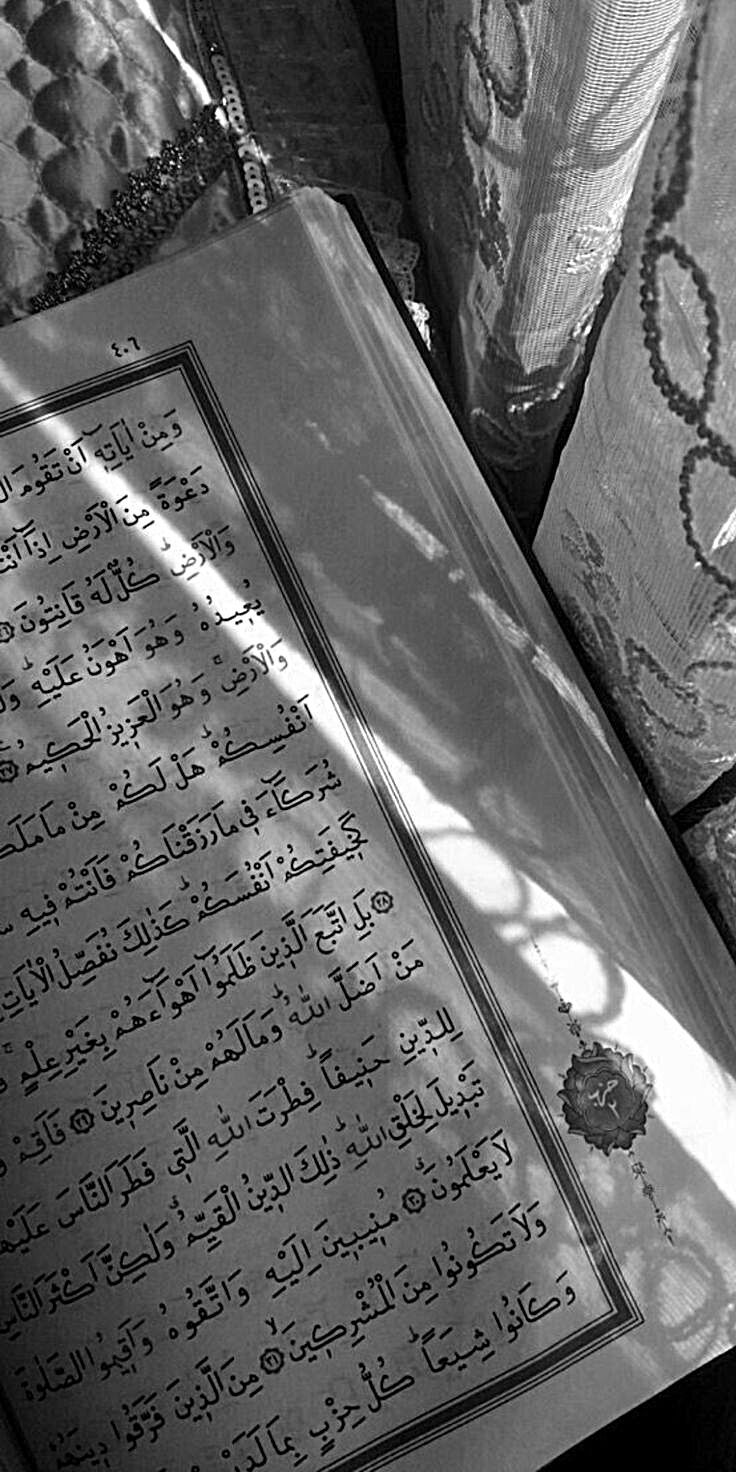 ٤٠٦
وَمِنْ اٰيَاتِه۪ٓ اَنْ تَقُومَ
دَعْوَةً مِنَ الْاَرْضِ اِذَٓا
وَالْاَرْضِۜ كُلٌّ لَهُ قَانِتُونَ
يُع۪يدُهُ وَهُوَ اَهْوَنُ عَلَيْهِۜ
وَالْاَرْضِۚ وَهُوَ الْعَز۪يزُ الْحَك۪يمُ ﴿٢٧﴾
اَنْفُسِكُمْۜ هَلْ لَكُمْ مِنْ مَا
شُرَكَٓاءَ ف۪ي مَا رَزَقْنَاكُمْ فَاَنْتُمْ ف۪يهِ
كَخ۪يفَتِكُمْ اَنْفُسَكُمْۜ كَذٰلِكَ نُفَصِّلُ الْاٰيَاتِ
﴿٢٨﴾ بَلِ اتَّبَعَ الَّذ۪ينَ ظَلَمُٓوا اَهْوَٓاءَهُمْ بِغَيْرِ عِلْمٍۚ
مَنْ اَضَلَّ اللّٰهُۜ وَمَا لَهُمْ مِنْ نَاصِر۪ينَ ﴿٢٩﴾ فَاَقِمْ
لِلدّ۪ينِ حَن۪يفاًۜ فِطْرَتَ اللّٰهِ الَّت۪ي فَطَرَ النَّاسَ
تَبْد۪يلَ لِخَلْقِ اللّٰهِۜ ذٰلِكَ الدّ۪ينُ الْقَيِّمُۗ وَلٰكِنَّ اَكْثَرَ النَّاسِ
لَا يَعْلَمُونَۗ ﴿٣٠﴾ مُن۪يب۪ينَ اِلَيْهِ وَاتَّقُوهُ وَاَق۪يمُوا الصَّلٰوةَ
وَلَا تَكُونُوا مِنَ الْمُشْرِك۪ينَۙ ﴿٣١﴾ مِنَ الَّذ۪ينَ فَرَّقُوا د۪ينَهُمْ
وَكَانُوا شِيَعاًۜ كُلُّ حِزْبٍ بِمَا